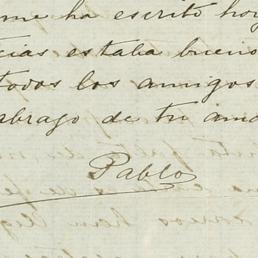 me ha escrito hoy
cias estaba bueno
todos los amigos
abrazo de tu ama
Pablo